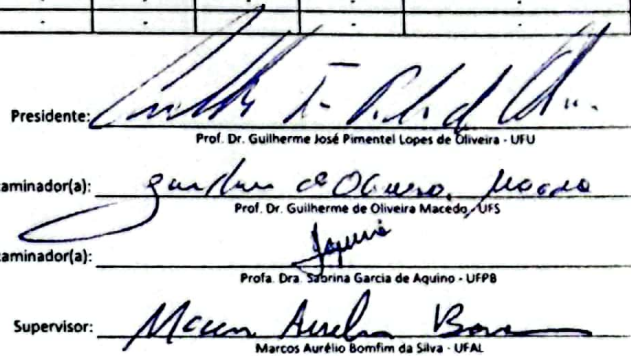 Presidente:
Prof. Dr. Guilherme José Pimentel Lopes de Oliveira - UFU
aminador(a):
Guilherme de Oliveira Macedo
Prof. Dr. Guilherme de Oliveira Macedo - UFS
aminador(a):
Profa. Dra. Sabrina Garcia de Aquino - UFPB
Supervisor:
Marcos Aurélio Bomfim da Silva - UFAL